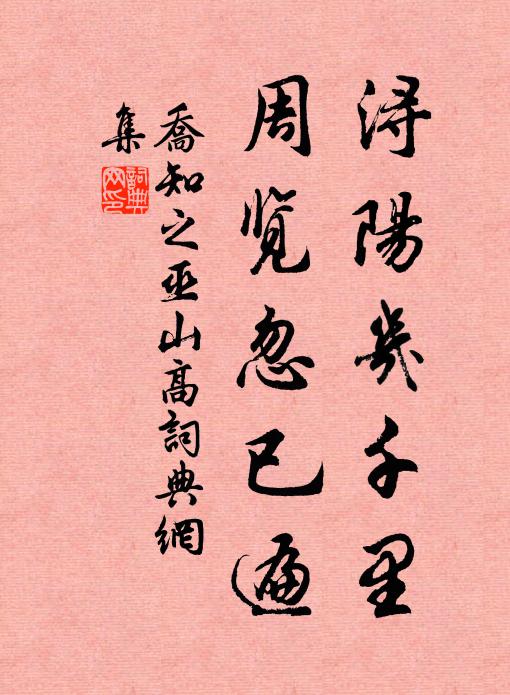 浔陽幾千里
周览忽已遍
喬知之巫山高詞典網
集
詞典
网印